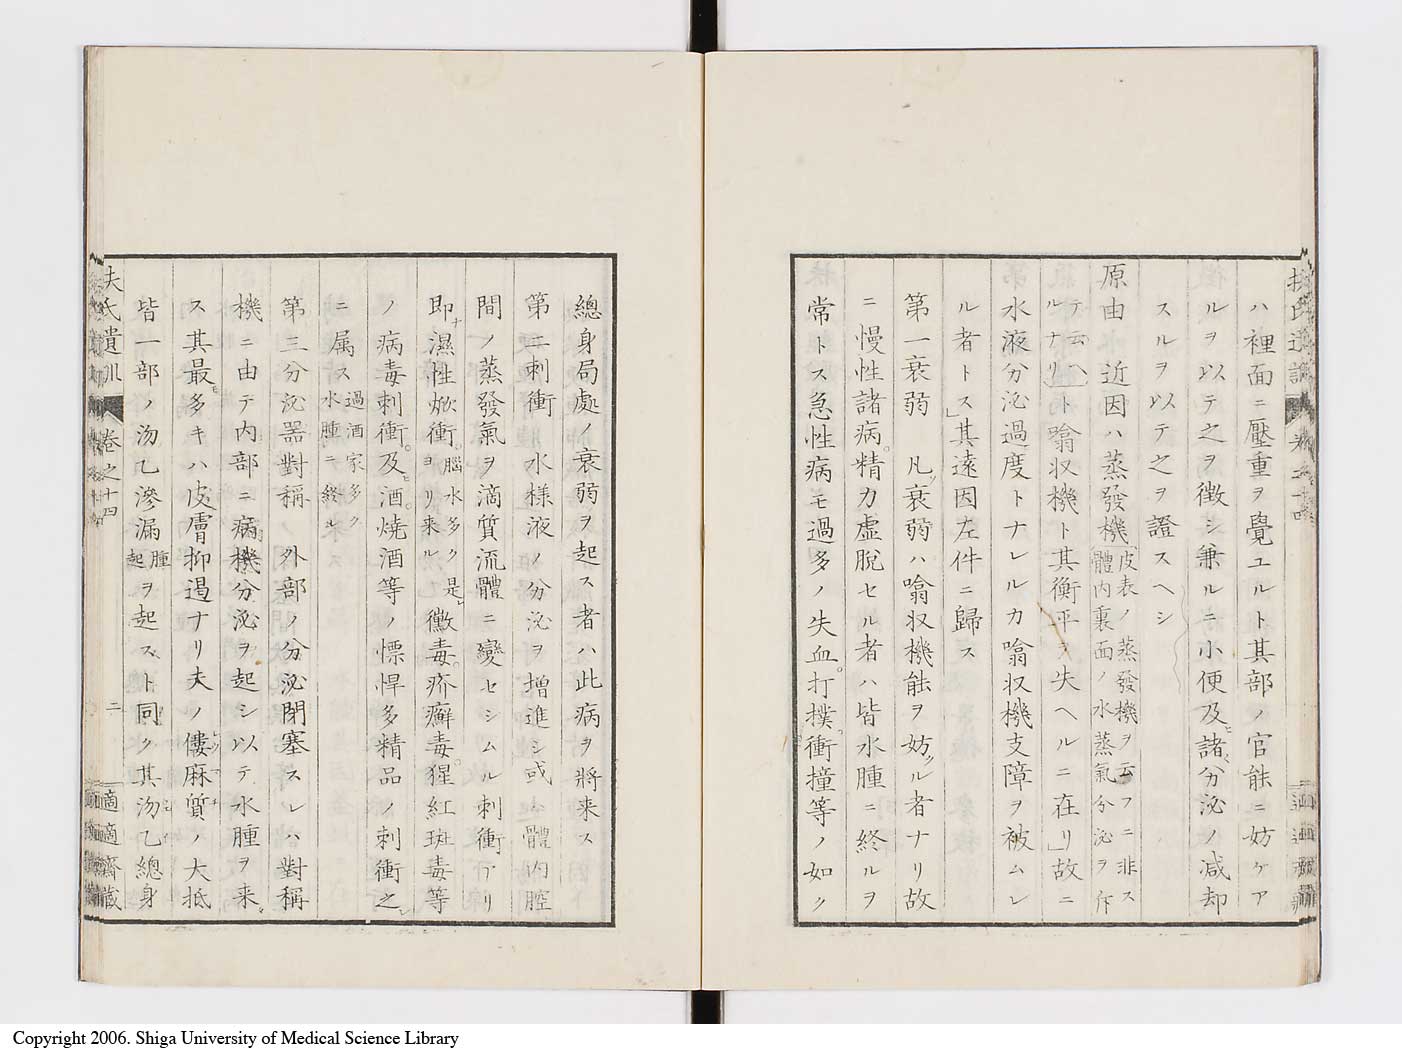 ハ裡面ニ壓重ヲ覺エルト其部ノ官能ニ妨ケア
ルヲ以テ之ヲ徴シ兼ルニ小便及諸分泌ノ減却
スルヲ以テ之ヲ證スヘシ
原由 近因ハ蒸發機
皮表ノ蒸發機ヲ云フニ非ス
體内裏面ノ水蒸氣分泌ヲ斥
テ云ヘ
ルナリ
ト噏収機ト其衡平ヲ失ヘルニ在リ故ニ
水液分泌過度トナレルカ噏収機支障ヲ被ムレ
ル者トス其遠因左件ニ歸ス
第一衰弱 凡衰弱ハ噏収機能ヲ妨ル者ナリ故
ニ慢性諸病精力虚脱セル者ハ皆水腫ニ終ルヲ
常トス急性病モ過多ノ失血打撲衝撞等ノ如ク
扶氏遺訓 卷之十四
總身局處ノ衰弱ヲ起ス者ハ此病ヲ將来ス
第二刺衝 水様液ノ分泌ヲ増進シ或ハ體内腔
間ノ蒸發氣ヲ滴質流體ニ變セシムル刺衝アリ
即濕性焮衝
腦水多ク是
ヨリ来ル
黴毒疥癬毒猩紅斑毒等
ノ病毒刺衝及酒燒酒等ノ慓悍多精品ノ刺衝之
ニ属ス
過酒家多ク
水腫ニ終ル
第三分泌器對稱 外部ノ分泌閉塞スレハ對稱
機ニ由テ内部ニ病機分泌ヲ起シ以テ水腫ヲ来
ス其最多キハ皮膚抑遏ナリ夫ノ僂麻質ノ大抵
皆一部ノ汤乙滲漏
腫
起
ヲ起スト同ク其汤乙總身
扶氏遺訓 卷之十四 二 適適齋藏
Copyright 2006. Shiga University of Medical Science Library